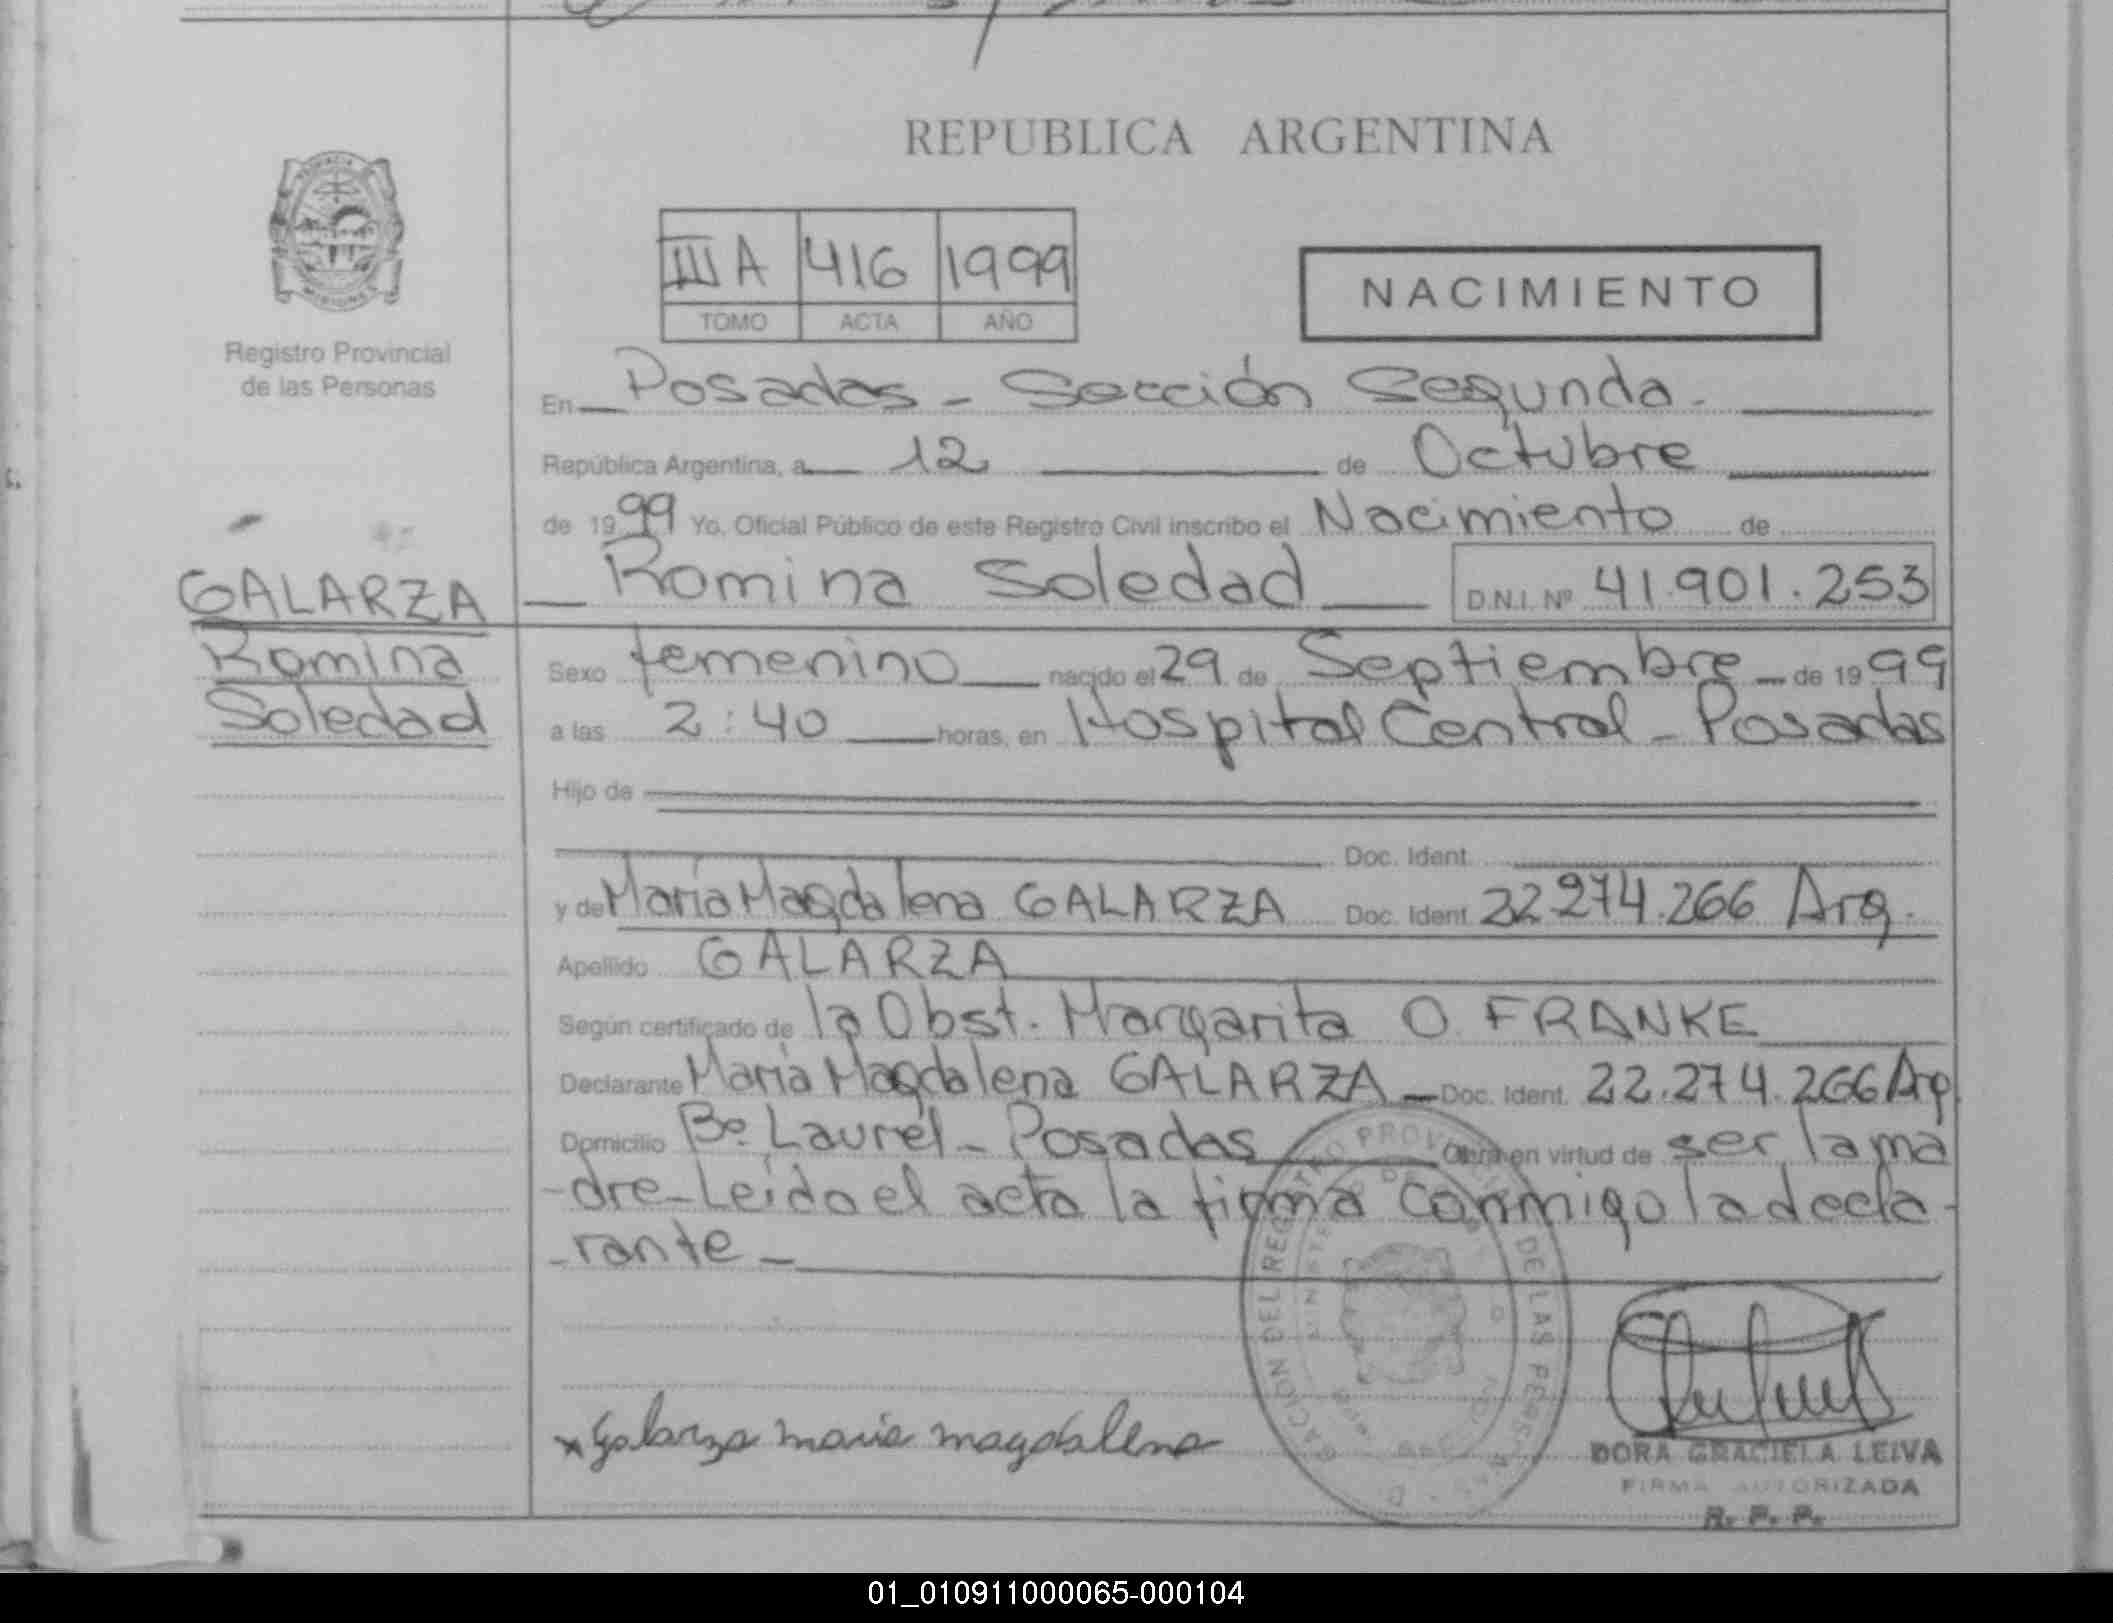 REPUBLICA ARGENTINA
III A 416 1999
TOMO ACTA AÑO
NACIMIENTO
Registro Provincial
de las Personas
En Posadas - Sección Segunda -
República Argentina, a 12 de Octubre
de 1999 Yo, Oficial Público de este Registro Civil inscribo el Nacimiento de
Romina Soledad D.N.I. Nº 41.901.253
GALARZA
Romina
Soledad
Sexo femenino nacido el 29 de Septiembre de 1999
a las 2:40 horas, en Hospital Central - Posadas
Hijo de
Doc. Ident.
y de Maria Magdalena GALARZA Doc. Ident. 22.274.266 Arg.
Apellido GALARZA
Según certificado de la Obst. Margarita O. FRANKE
Declarante Maria Magdalena GALARZA Doc. Ident. 22.274.266 Arg
Domicilio Bº Laurel - Posadas Obra en virtud de ser la ma
-dre - Leido el acta la firma conmigo la decla-
-rante -
Galarza maria magdalena
DORA GRACIELA LEIVA
FIRMA AUTORIZADA
R. P. P.
01_010911000065-000104